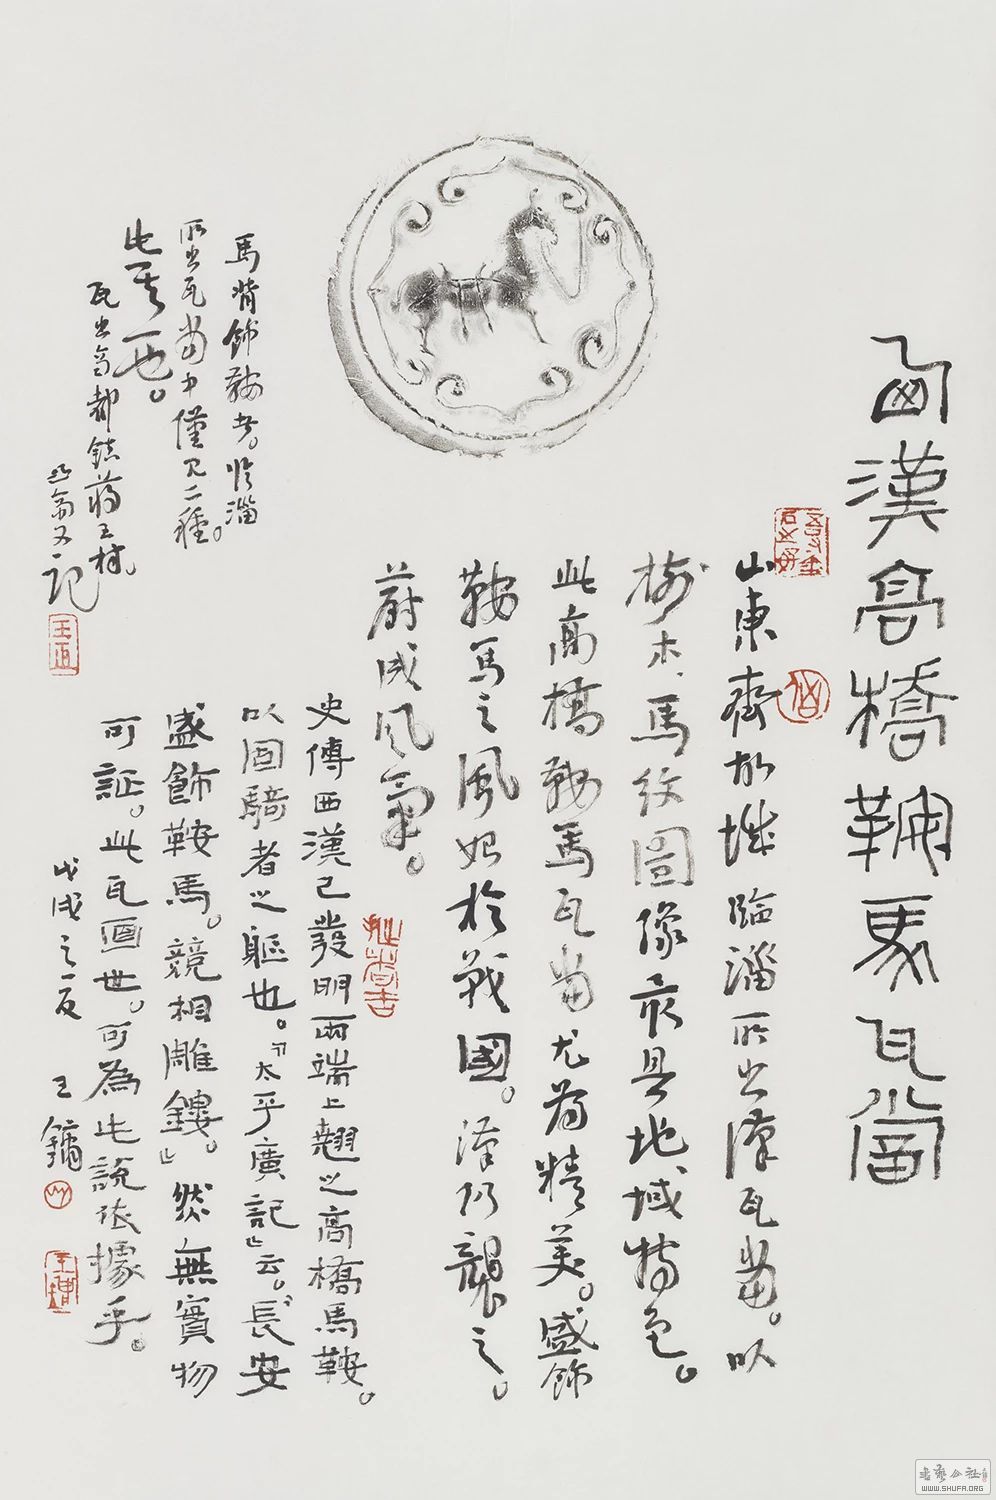 西漢高橋鞍馬瓦當
山東齊故城臨淄所出漢瓦當。以
樹木、馬紋圖像最具地域特色。
此高橋鞍馬瓦當尤為精美。盛飾
鞍馬之風始於戰國。漢仍襲之。
蔚成風氣。
史傳西漢已發明兩端上翹之高橋馬鞍。
以固騎者之軀也。『太平廣記』云。『長安
盛飾鞍馬。競相雕鏤。』然無實物
可証。此瓦面世。可為此說依據乎。
戊戌之夏 王鏞
馬背飾鞍者。臨淄
所出瓦當中僅見二種。
此其一也。
瓦出高都鎮蔣王村。
又記
書藝公社
WWW.SHUFA.ORG